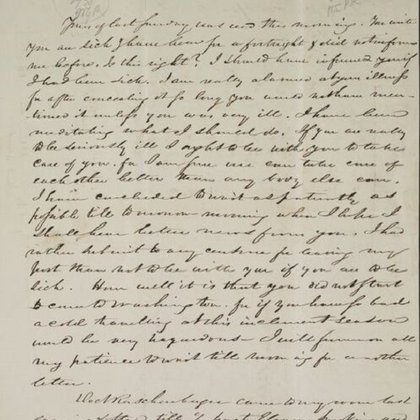 Yours of last Sunday was recd this morning. You write
you are sick & have been for a fortnight & did not inform
me before. Is this right? I should have informed you if
I had been sick. I am really alarmed at your illness
for after concealing it so long you would not have men-
tioned it unless you was very ill. I have been
meditating what I should do. If you are really
to be seriously ill I ought to be with you to take
care of you. for I am sure we can take care of
each other better than any body else can.
I have concluded to wait as patiently as
possible till to-morrow morning when I hope I
shall have better news from you. I had
rather submit to any censure for leaving my
post than not to be with you if you are to be
sick. How well it is that you did not start
to come to Washington. for if you have so bad
a cold travelling at this inclement season
would be very hazardous - I will summon all
my patience to wait till morning for another
letter.
came to my room last